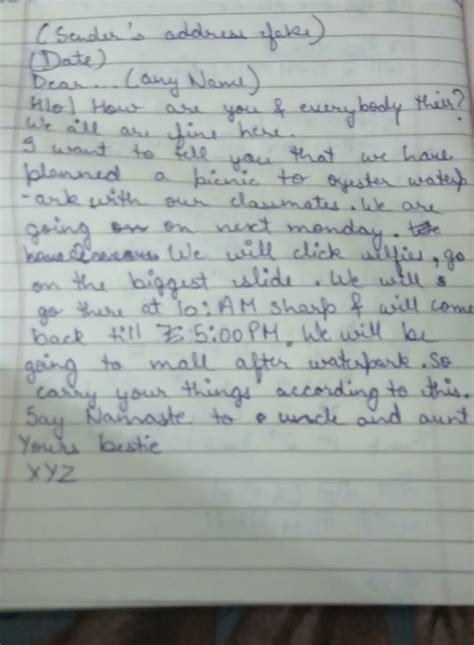 (Sender's address fake)
(Date)
Dear... (any Name)
Hlo! How are you & everybody their?
We all are fine here.
I want to tell you that we have
planned a picnic to oyester waterp
-ark with our classmates. We are
going on on next monday.
We will click selfies, go
on the biggest slide. We will
go there at 10: AM sharp & will come
back till 5:00 PM. We will be
going to mall after waterpark. So
carry your things according to this.
Say Namaste to uncle and aunt
Yours bestie
XYZ